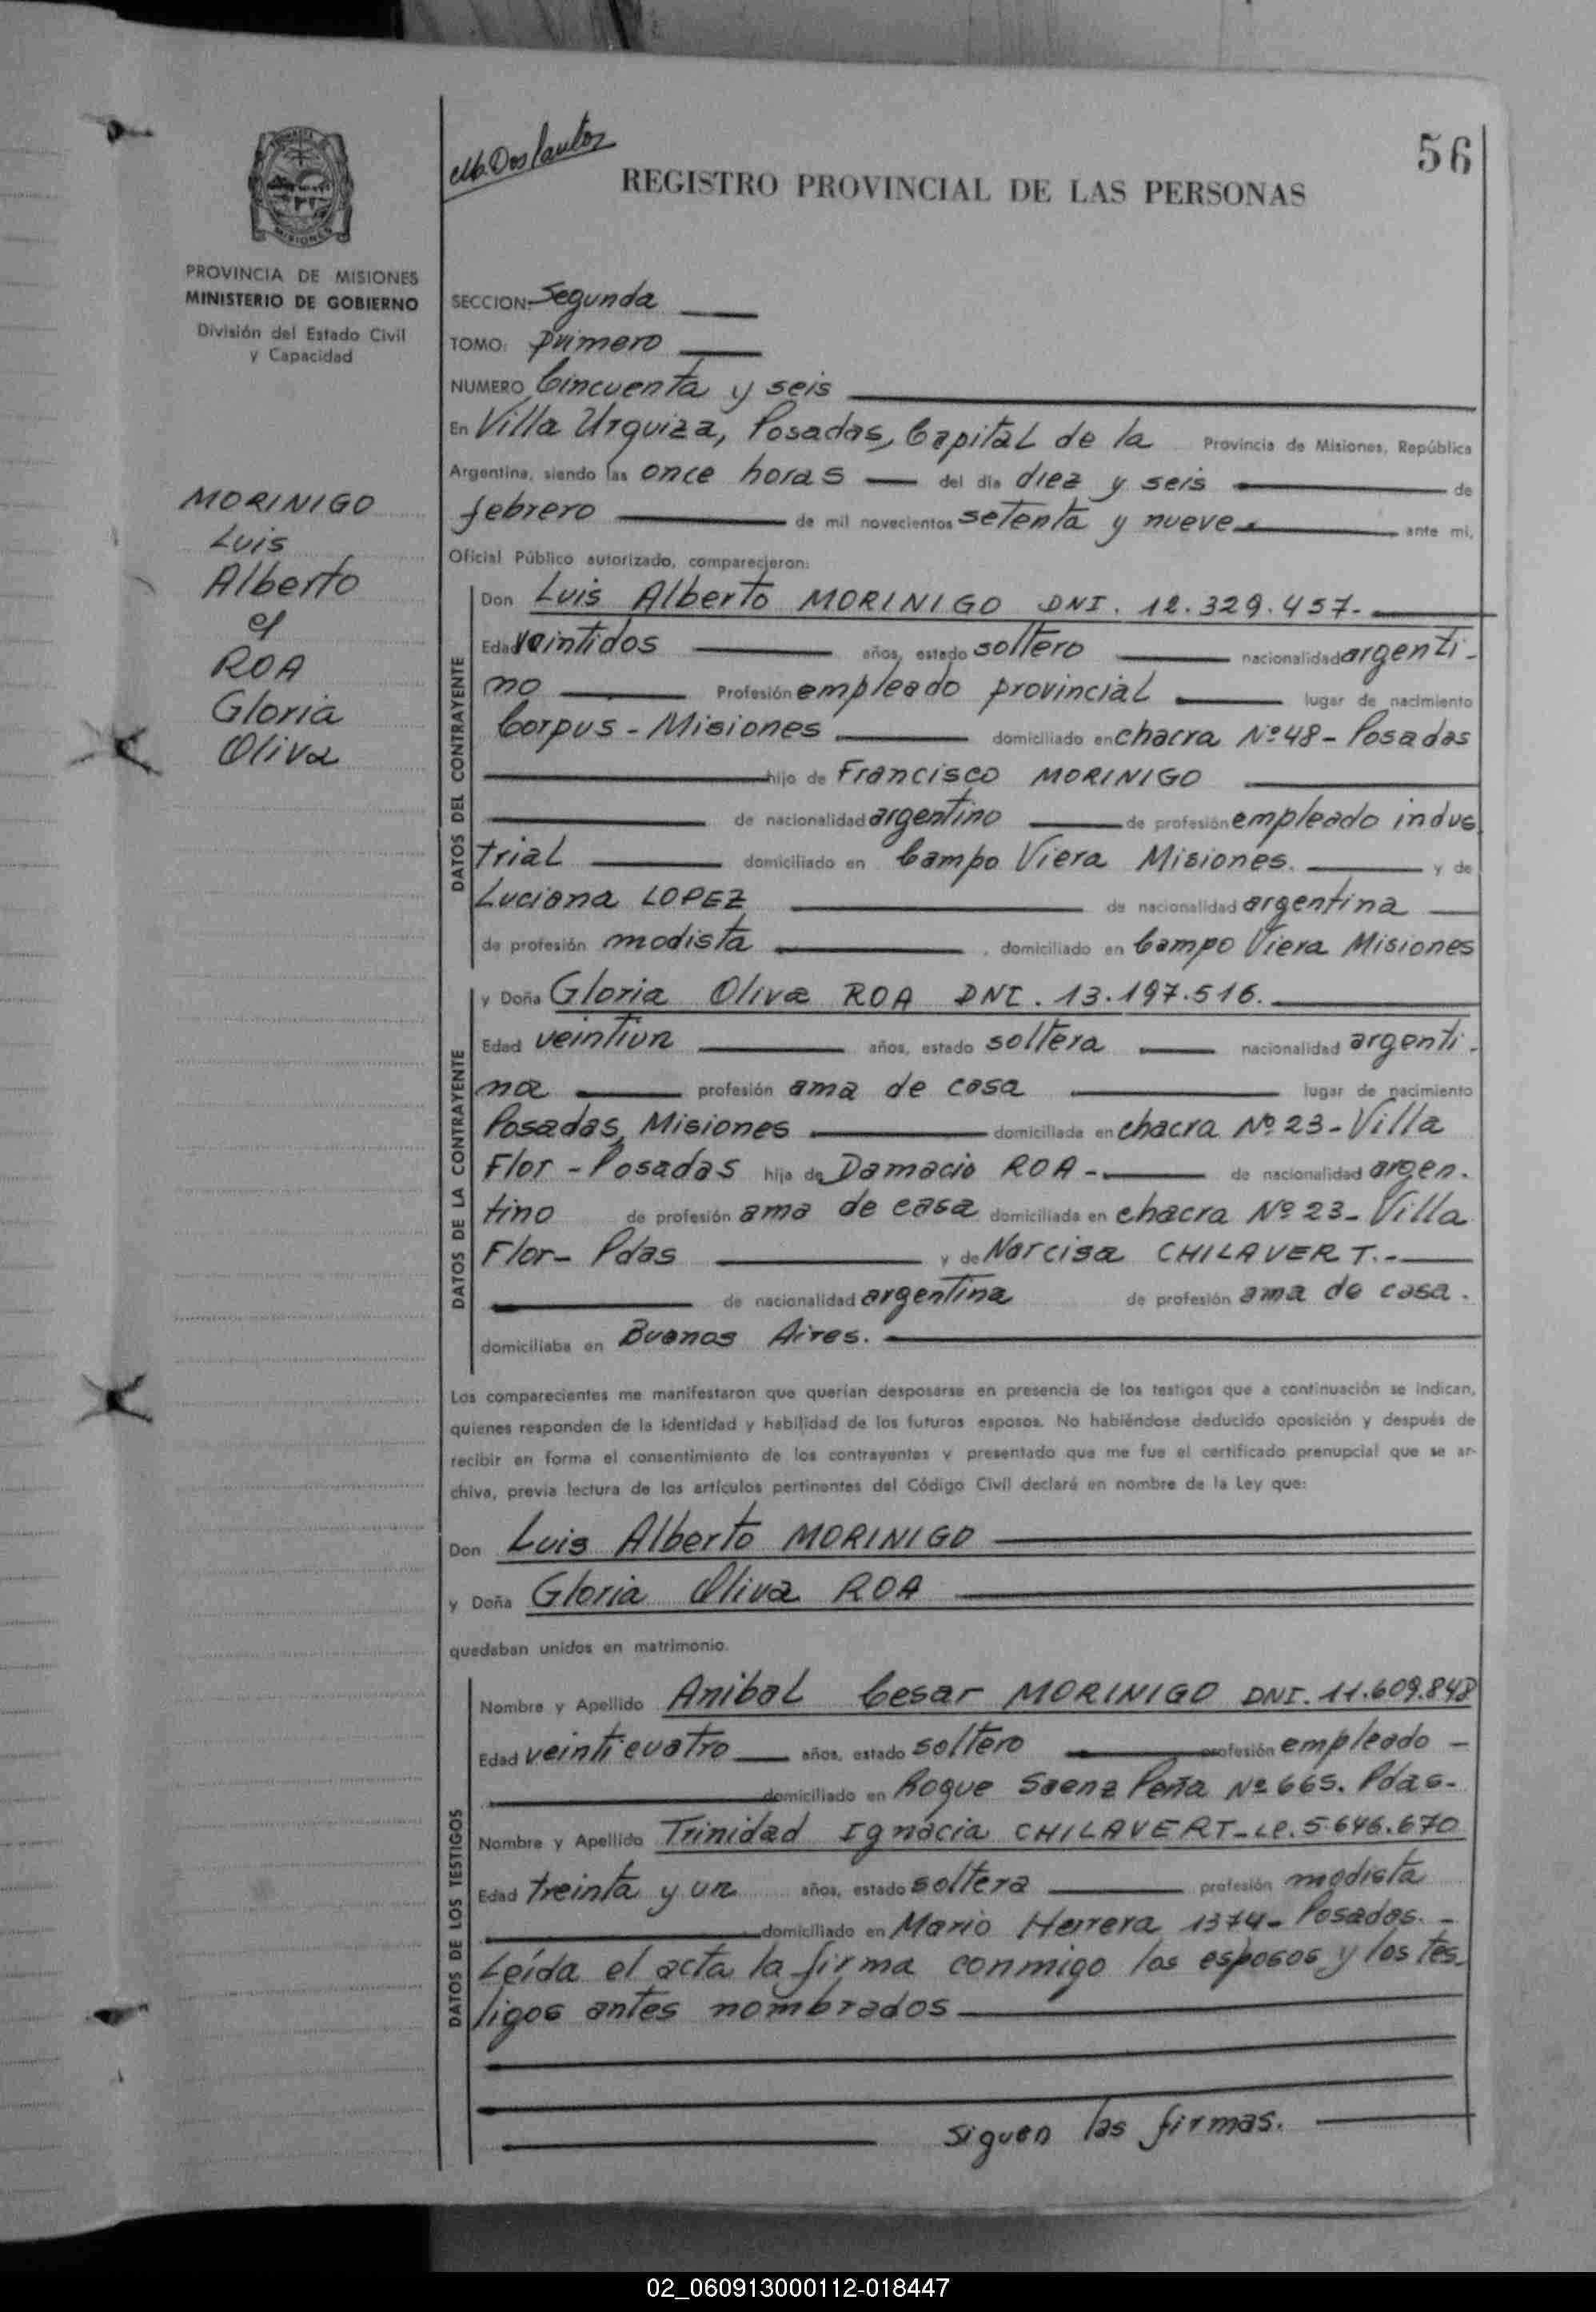 Mb. Dos Santos
56
REGISTRO PROVINCIAL DE LAS PERSONAS
MISIONES
PROVINCIA DE MISIONES
MINISTERIO DE GOBIERNO
División del Estado Civil
y Capacidad
MORINIGO
Luis
Alberto
ROA
Gloria
Oliva
SECCION: Segunda
TOMO: primero
NUMERO Cincuenta y seis
En Villa Urquiza, Posadas, Capital de la Provincia de Misiones, República
Argentina, siendo las once horas del día diez y seis de
febrero de mil novecientos setenta y nueve ante mi,
Oficial Público autorizado, comparecieron:
DATOS DEL CONTRAYENTE
Don Luis Alberto MORINIGO DNI. 12.329.457.-
Edad veintidos años, estado soltero nacionalidad argenti-
no Profesión empleado provincial lugar de nacimiento
Corpus - Misiones domiciliado en chacra Nº 48 - Posadas
hijo de Francisco MORINIGO
de nacionalidad argentino de profesión empleado indus
trial domiciliado en Campo Viera Misiones. y de
Luciana LOPEZ de nacionalidad argentina
de profesión modista , domiciliado en Campo Viera Misiones
DATOS DE LA CONTRAYENTE
y Doña Gloria Oliva ROA DNI. 13.197.516.
Edad veintiun años, estado soltera nacionalidad argenti-
na profesión ama de casa lugar de nacimiento
Posadas, Misiones domiciliada en chacra Nº 23 - Villa
Flor - Posadas hija de Damacio ROA - de nacionalidad argen-
tino de profesión ama de casa domiciliada en chacra Nº 23 - Villa
Flor - Pdas y de Narcisa CHILAVERT.-
de nacionalidad argentina de profesión ama de casa.
domiciliaba en Buenos Aires.
Los comparecientes me manifestaron que querían desposarse en presencia de los testigos que a continuación se indican,
quienes responden de la identidad y habilidad de los futuros esposos. No habiéndose deducido oposición y después de
recibir en forma el consentimiento de los contrayentes y presentado que me fue el certificado prenupcial que se ar-
chiva, previa lectura de los artículos pertinentes del Código Civil declaré en nombre de la Ley que:
Don Luis Alberto MORINIGO
y Doña Gloria Oliva ROA
quedaban unidos en matrimonio.
DATOS DE LOS TESTIGOS
Nombre y Apellido Anibal Cesar MORINIGO DNI. 11.609.848
Edad veinticuatro años, estado soltero profesión empleado -
domiciliado en Roque Saenz Peña Nº 665. Pdas-
Nombre y Apellido Trinidad Ignacia CHILAVERT - LC. 5.646.670
Edad treinta y un años, estado soltera profesión modista
domiciliado en Mario Herrera 1374 - Posadas. -
Leída el acta la firma conmigo los esposos y los tes-
tigos antes nombrados
siguen las firmas.
02_060913000112-018447